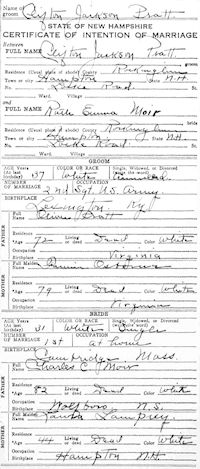 Name of groom Clifton Jackson Pratt
STATE OF NEW HAMPSHIRE
CERTIFICATE OF INTENTION OF MARRIAGE
Between
FULL NAME Clifton Jackson Pratt
Residence (Usual place of abode) County Rockingham
Town or City Hampton State N.H.
Street Locke Road
Ward. Village
And
FULL NAME Emma Moir
Residence (Usual place of abode) County Rockingham
Town or City Hampton State N.H.
Street Locke Road
Ward. Village
GROOM
AGE Years (At last birthday) 37 COLOR OR RACE White Single, Widowed, or Divorced
NUMBER OF MARRIAGE 2nd OCCUPATION Sgt. U.S. Army
BIRTHPLACE Lexington Ky
FATHER
Full Name Pratt
Age 72 Living or Dead Dead Color White
Occupation
Birthplace Virginia
MOTHER
Full Maiden Name Osborne
Age 79 Living or Dead Dead Color White
Occupation
Birthplace Virginia
BRIDE
AGE Years (At last birthday) 31 COLOR OR RACE White Single, Widowed, or Divorced Single
NUMBER OF MARRIAGE 1st OCCUPATION at home
BIRTHPLACE Cambridge Mass.
FATHER
Full Name Charles C. Moir
Age 82 Living or Dead Dead Color White
Occupation
Birthplace Wolfboro N.S.
MOTHER
Full Maiden Name Lamprey
Age 44 Living or Dead Dead Color White
Occupation
Birthplace Hampton N.H.